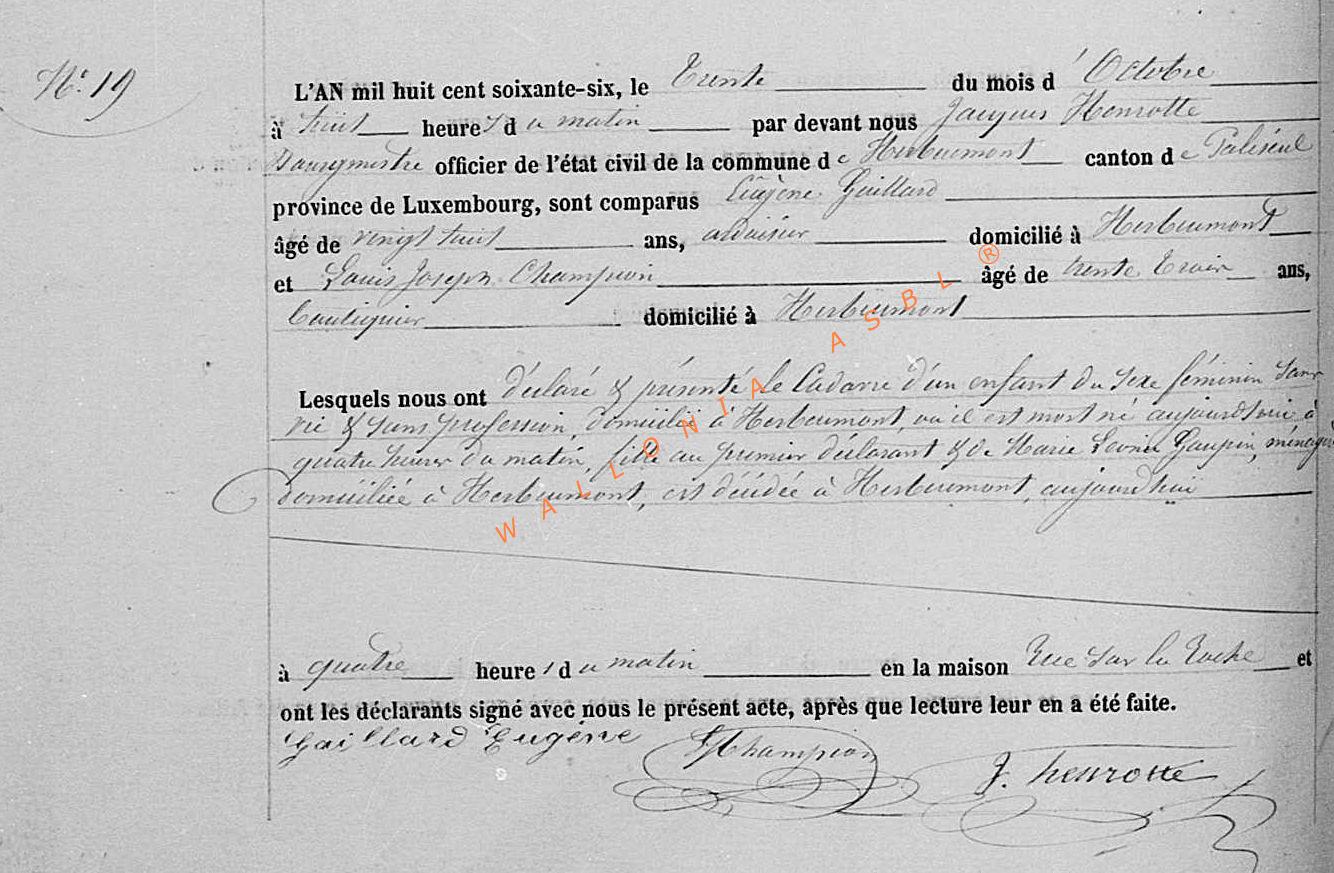 N° 19
L'AN mil huit cent soixante-six, le trente du mois d'Octobre
à huit heures du matin par devant nous Jacques Henrotte
Bourgmestre officier de l'état civil de la commune de Herbeumont canton de Paliseul
province de Luxembourg, sont comparus Eugène Gaillard
âgé de vingt huit ans, ardoisier domicilié à Herbeumont
et Louis Joseph Champion âgé de trente trois ans,
domicilié à Herbeumont
Lesquels nous ont déclaré & présenté le Cadavre d'un enfant du sexe féminin sans
vie & sans profession, domicilié à Herbeumont, où il est mort né aujourd'hui à
quatre heures du matin, fille au premier déclarant & de Marie Gaupin, ménagère
domiciliée à Herbeumont, est décédée à Herbeumont, aujourd'hui
à quatre heures du matin en la maison Rue sur la Roche et
ont les déclarants signé avec nous le présent acte, après que lecture leur en a été faite.
Gaillard Eugène Champion J. henrotte
WALLONIA ASBL ®